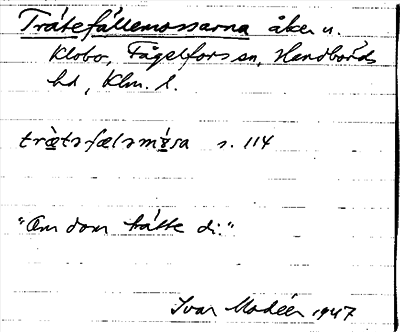 Trätefällemossarna åker u.
Klobo, Fågelfors sn, Handbörds
hd, Klm. l.
trætəfæləmosa s. 114
"Om dom trätte di."
Ivar Modéer 1947